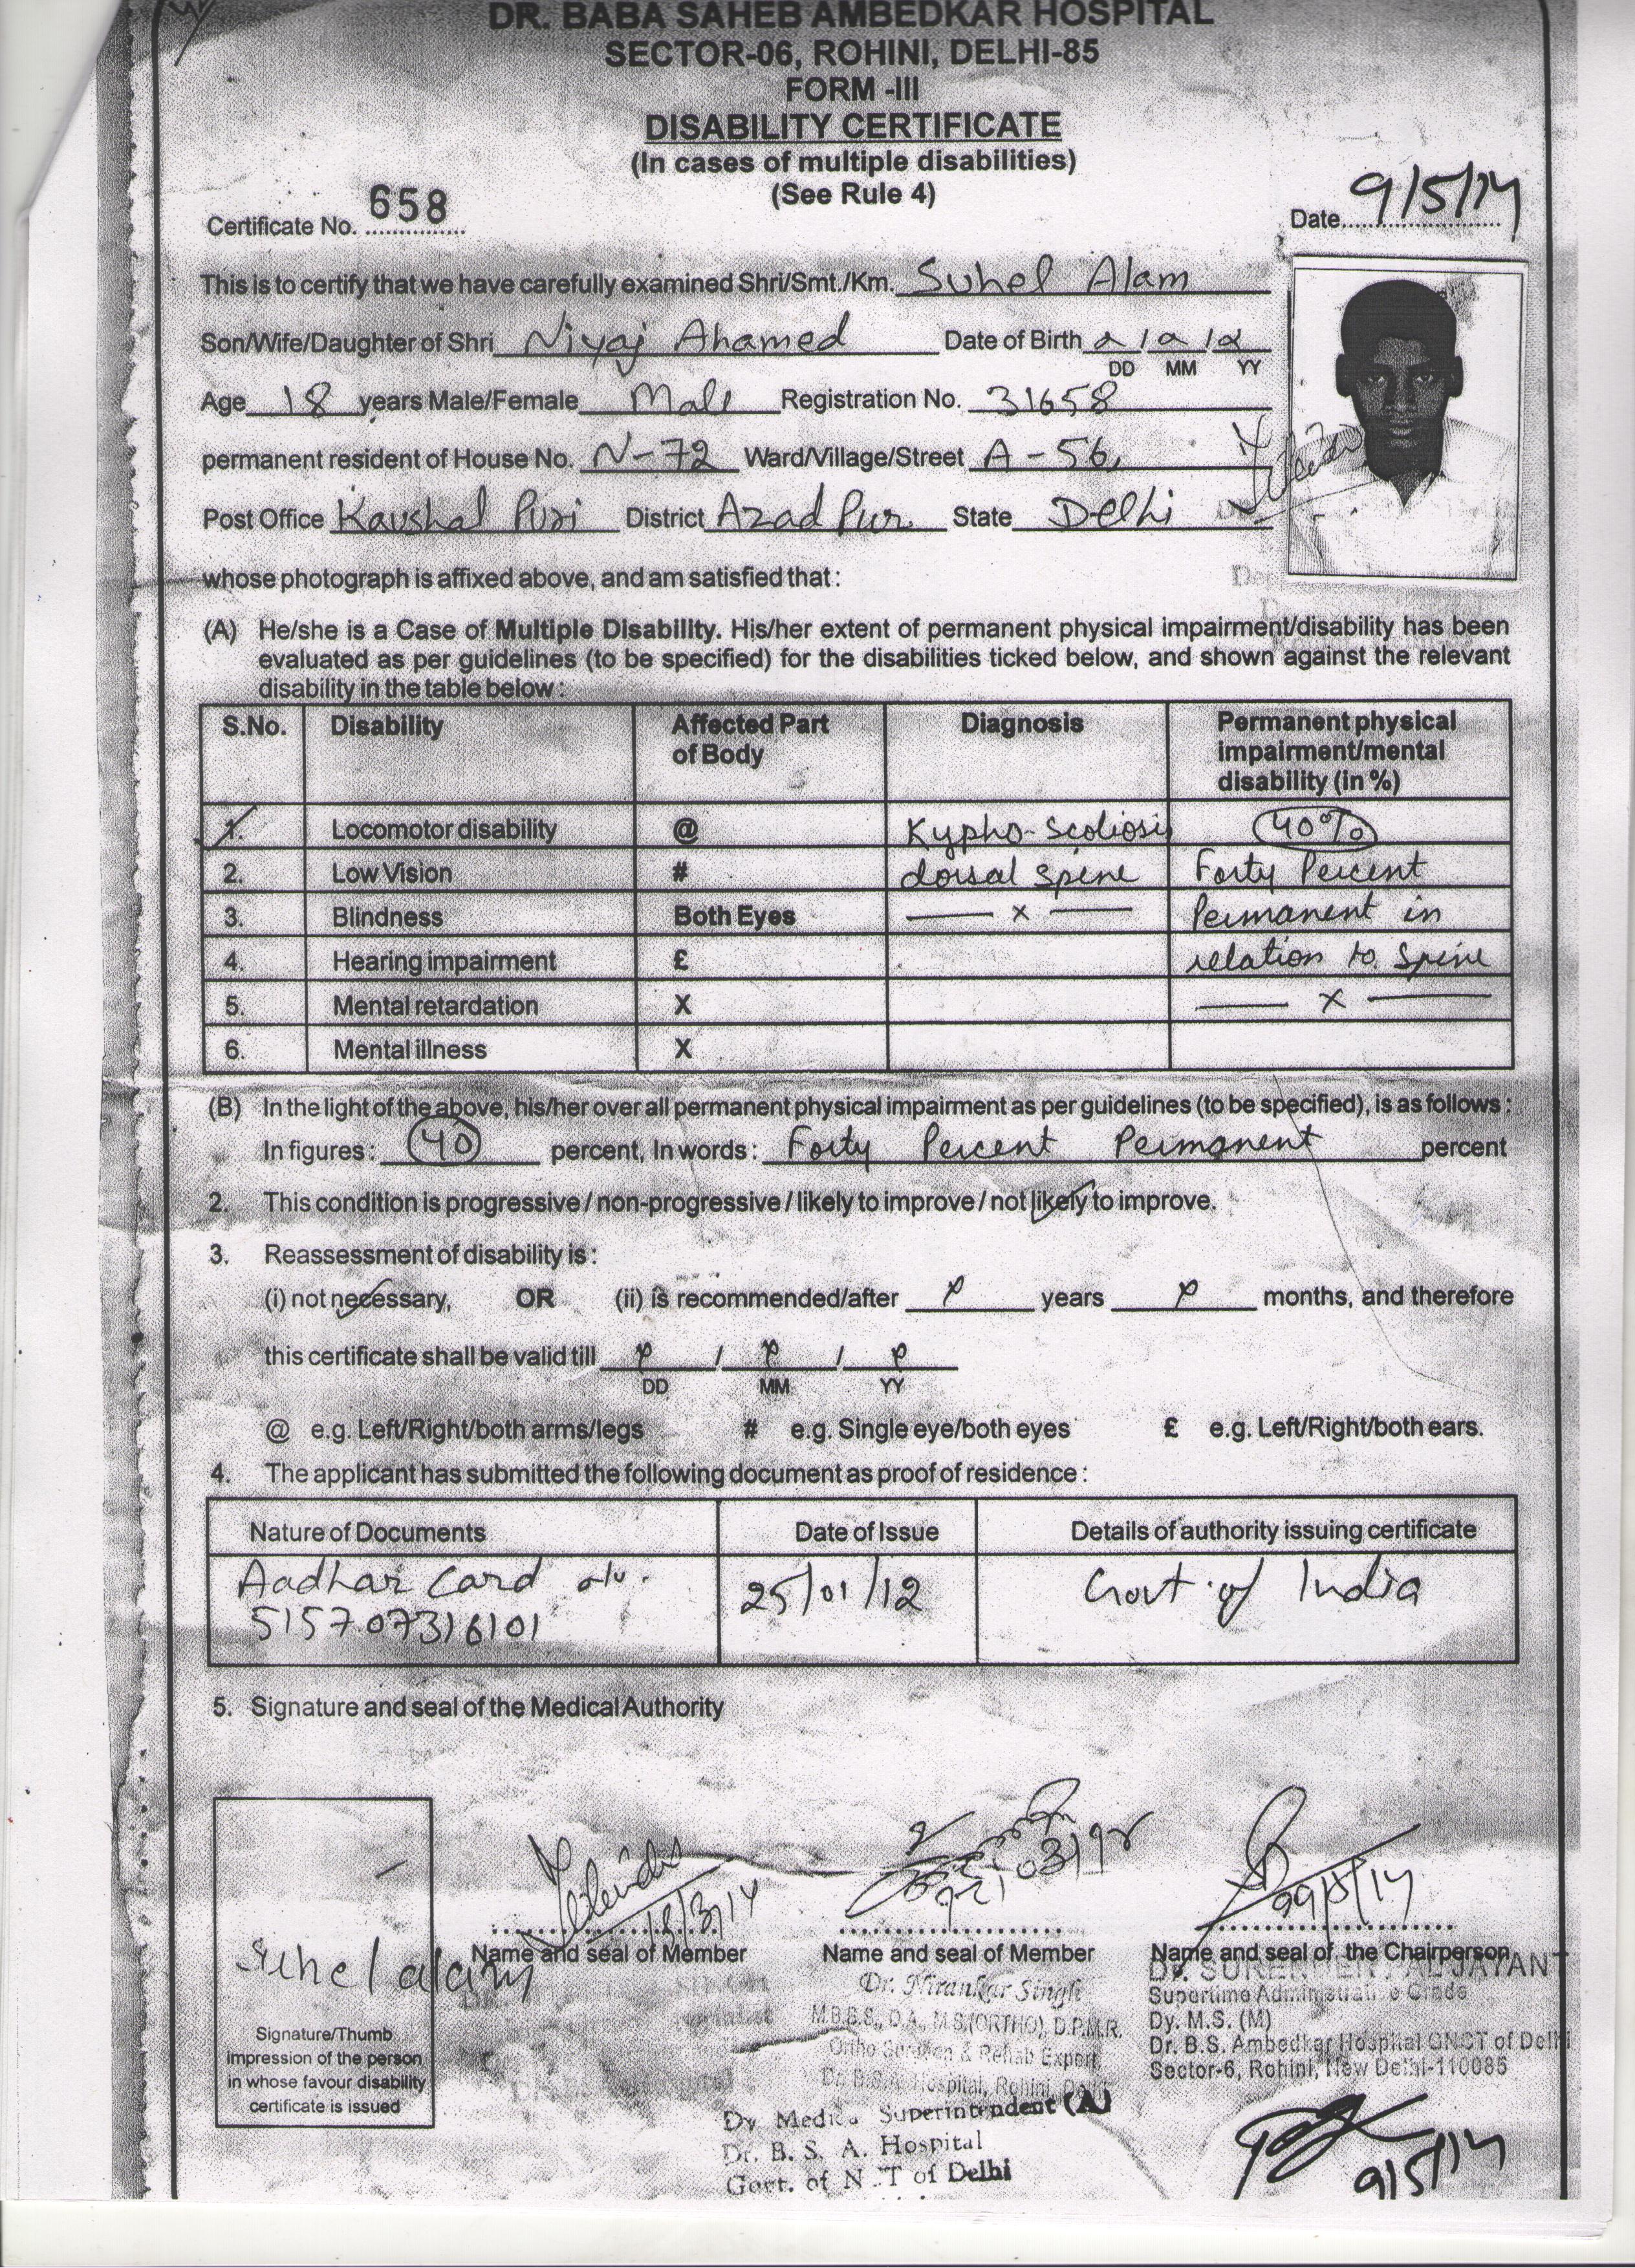 DR. BABA SAHEB AMBEDKAR HOSPITAL
SECTOR-06, ROHINI, DELHI-85
FORM -III
DISABILITY CERTIFICATE
(In cases of multiple disabilities)
(See Rule 4)
Certificate No. 658
Date 9/5/14
This is to certify that we have carefully examined Shri/Smt./Km. Suhel Alam
Son/Wife/Daughter of Shri Niyaj Ahamed Date of Birth / /
DD MM YY
Age 18 years Male/Female Male Registration No. 31658
permanent resident of House No. N-72 Ward/Village/Street A-56,
Post Office Kaushal Puri District Azad Pur. State Delhi
whose photograph is affixed above, and am satisfied that :
(A) He/she is a Case of Multiple Disability. His/her extent of permanent physical impairment/disability has been
evaluated as per guidelines (to be specified) for the disabilities ticked below, and shown against the relevant
disability in the table below :
S.No. Disability Affected Part of Body Diagnosis Permanent physical impairment/mental disability (in %)
1. Locomotor disability @ Kypho-Scoliosis 40%
2. Low Vision # dorsal spine Forty Percent
3. Blindness Both Eyes — x — Permanent in
4. Hearing impairment £ relation to Spine
5. Mental retardation X — x —
6. Mental illness X
(B) In the light of the above, his/her over all permanent physical impairment as per guidelines (to be specified), is as follows :
In figures : 40 percent, In words : Forty Percent Permanent percent
2. This condition is progressive / non-progressive / likely to improve / not likely to improve.
3. Reassessment of disability is :
(i) not necessary, OR (ii) is recommended/after years months, and therefore
this certificate shall be valid till / /
DD MM YY
@ e.g. Left/Right/both arms/legs # e.g. Single eye/both eyes £ e.g. Left/Right/both ears.
4. The applicant has submitted the following document as proof of residence :
Nature of Documents Date of Issue Details of authority issuing certificate
Aadhar Card 25/01/12 Govt. of India
515707316101
5. Signature and seal of the Medical Authority
18/3/14
Suhel alam
Name and seal of Member Name and seal of Member Name and seal of the Chairperson
Dr. Nirankar Singh
M.B.B.S., D.A., M.S.(ORTHO), D.P.M.R.
Ortho Surgeon & Rehab Expert
Dr. B.S.A. Hospital, Rohini, Delhi
JAYANT
Supertime Administrative Grade
Dy. M.S. (M)
Dr. B.S. Ambedkar Hospital GNCT of Delhi
Sector-6, Rohini, New Delhi-110085
Signature/Thumb
impression of the person
in whose favour disability
certificate is issued
Dy Medical Superintendent (A)
Dr. B. S. A. Hospital
Govt. of NCT of Delhi
9/5/14